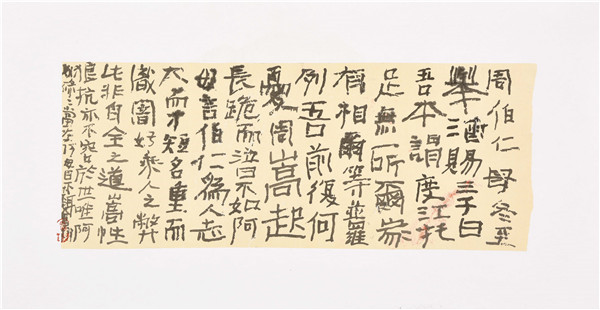 周伯仁母冬至
舉酒賜三子曰
吾本謂度江托
足無所爾家
有相爾等並羅
列吾前復何
憂周嵩起
長跪而泣曰不如阿
母言伯仁為人志
大而才短名重而
識闇好乘人之弊
此非自全之道嵩性
狼抗亦不容於世唯阿
奴碌々當在阿母目下耳